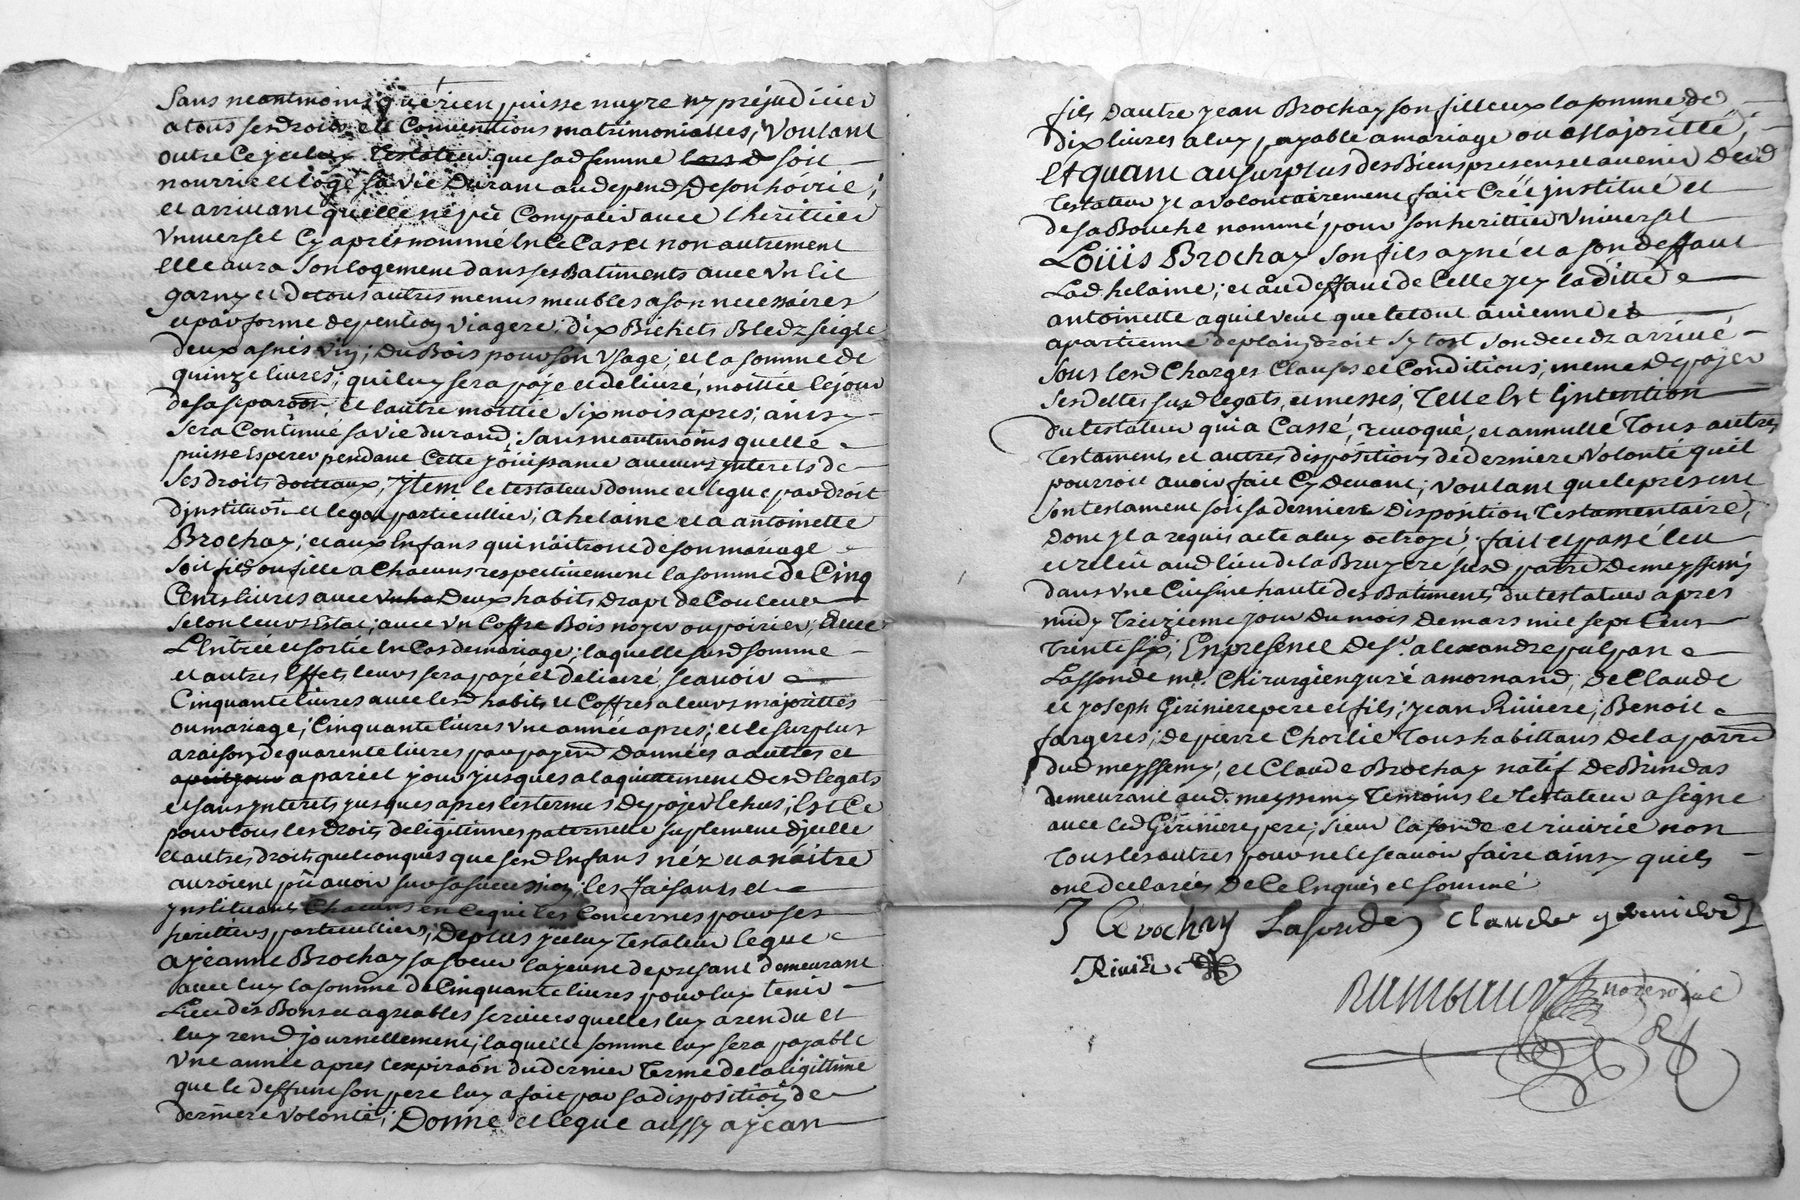 Sans neantmoins que rien puisse nuyre ny prejudicier
a tous ses droits et Conventions matrimonialles, voulant
outre Ce yceluy Testateur que sad femme soit
nourrie et logé sa vie Durant au depend de son hoirie;
et arrivant quelle ne put Compatir avec lheritier
Universel Cy apres nommé En Ce Cas et non autrement
elle aura Son logement dans ses Batiments avec Un lit
garny et de tous autres menus meubles a son necessaires
et par forme de pention viagere, dix Bichets Bledz seigle
deux asnés vin; Du Bois pour son Usage; et la somme de
quinze livres; qui luy sera payé et delivré, moittié le jour
de sa separaon, et lautre moittié six mois apres; ainsy
sera Continué sa vie durand; sans neantmoins quelle
puisse Esperer pendant Cette jöuissance aucuns ynterets de
ses droits dottaux, Jtem le testateur donne et legue par droit
d'jnstituon et legat particullier; a helaine et a antoinette
Brochay; et aux Enfans qui naitront de son mariage
soit fils ou fille a Chacuns respectivement la somme de Cinq
Cents livres avec Deux habits drap de Couleur
selon leurs Estat; avec Un Coffre Bois noyer ou poirier; Avec
L'Entrée et sortie En Cas de mariage; laquelle susd somme
et autres Effets leurs sera payé et delivré scavoir
Cinquante livres avec lesd habits et Coffres a leurs majorittés
ou mariage; Cinquante livres Une année apres; et le surplus
a raison de quarente livres par payemt D'années a autres et
a pareil jour jusques a laquittement Desd legats
et sans ynterets jusques apres les termes de payer Echus; Est Ce
pour tous les droits de ligitimes paternelle suplement d'jcelle
et autres droits quelconques que sesd Enfans néz et a naitre
auroient pû avoir sur sa succession; les faisants et
ynstituant Chacuns en Ce qui les Concernes pour ses
heritiers particulliers, De plus yceluy Testateur legue
A jeanne Brochay sa soeur la jeune de presant demeurant
avec luy la somme de Cinquante livres pour luy tenir
Lieu des Bons et agreables services quelles luy a rendu et
luy rend journellement; laquelle somme luy sera payable
Une année apres lexpiraon du dernier Terme de la ligittime
que le deffunt son pere luy a fait par sa disposition de
derniere volonté; Donne et legue aussy a jean
fils dautre jean Brochay son filleux la somme de
dix livres a luy payable a mariage ou Majoritté;
Et quant au surplus des Biens presens et avenir Dud
Testateur yl a volontairement fait Créé jnstitué et
de sa Bouche nommé pour son herittier Universel
Loüis Brochay Son fils ayné et a son deffaut
Lad helaine; et au deffaut de Celle cy laditte
antoinette a qui veut que le tout avienne et
apartienne de plain droit Sy tost Son decedz arrivé
Sous lesd Charges Clauses et Conditions; meme De payer
ses dettes susd legats, et messes, Telle Est l'jntention
du testateur qui a Cassé, revoqué, et annullé Tous autres
Testaments et autres dispositions de derniere volonté quil
pourroit avoir fait Cy Devant; voulant que le present
son testament soit sa derniere Disposition Testamentaire,
Dont yl a requis acte a luy octroyé. fait et passé leu
et releu aud lieu de la Bruyere susd parre De meyssemy
dans Une Cuisine haute des Batiments du testateur apres
midy Treizieme jour Du mois de mars mil sept Cens
Trente six; En presence De Sr. alexandre
Lassonde me. Chirurgien juré a mornand, de Claude
et joseph Geriniere pere et fils; jean Riviere; Benoit
fargeres; de pierre Chorlie Tous habittans De la parre
dud meyssemy, et Claude Brochay natif De Brindas
demeurant aud. meyssemy Temoins le Testateur a signé
avec led Geriniere pere; sieur lafonde et rivirie non
Tous les autres pour ne le scavoir faire ainsy quils
ont declarées De Ce Enquis et sommé
J Brochay Lafonde Claude
Riviere